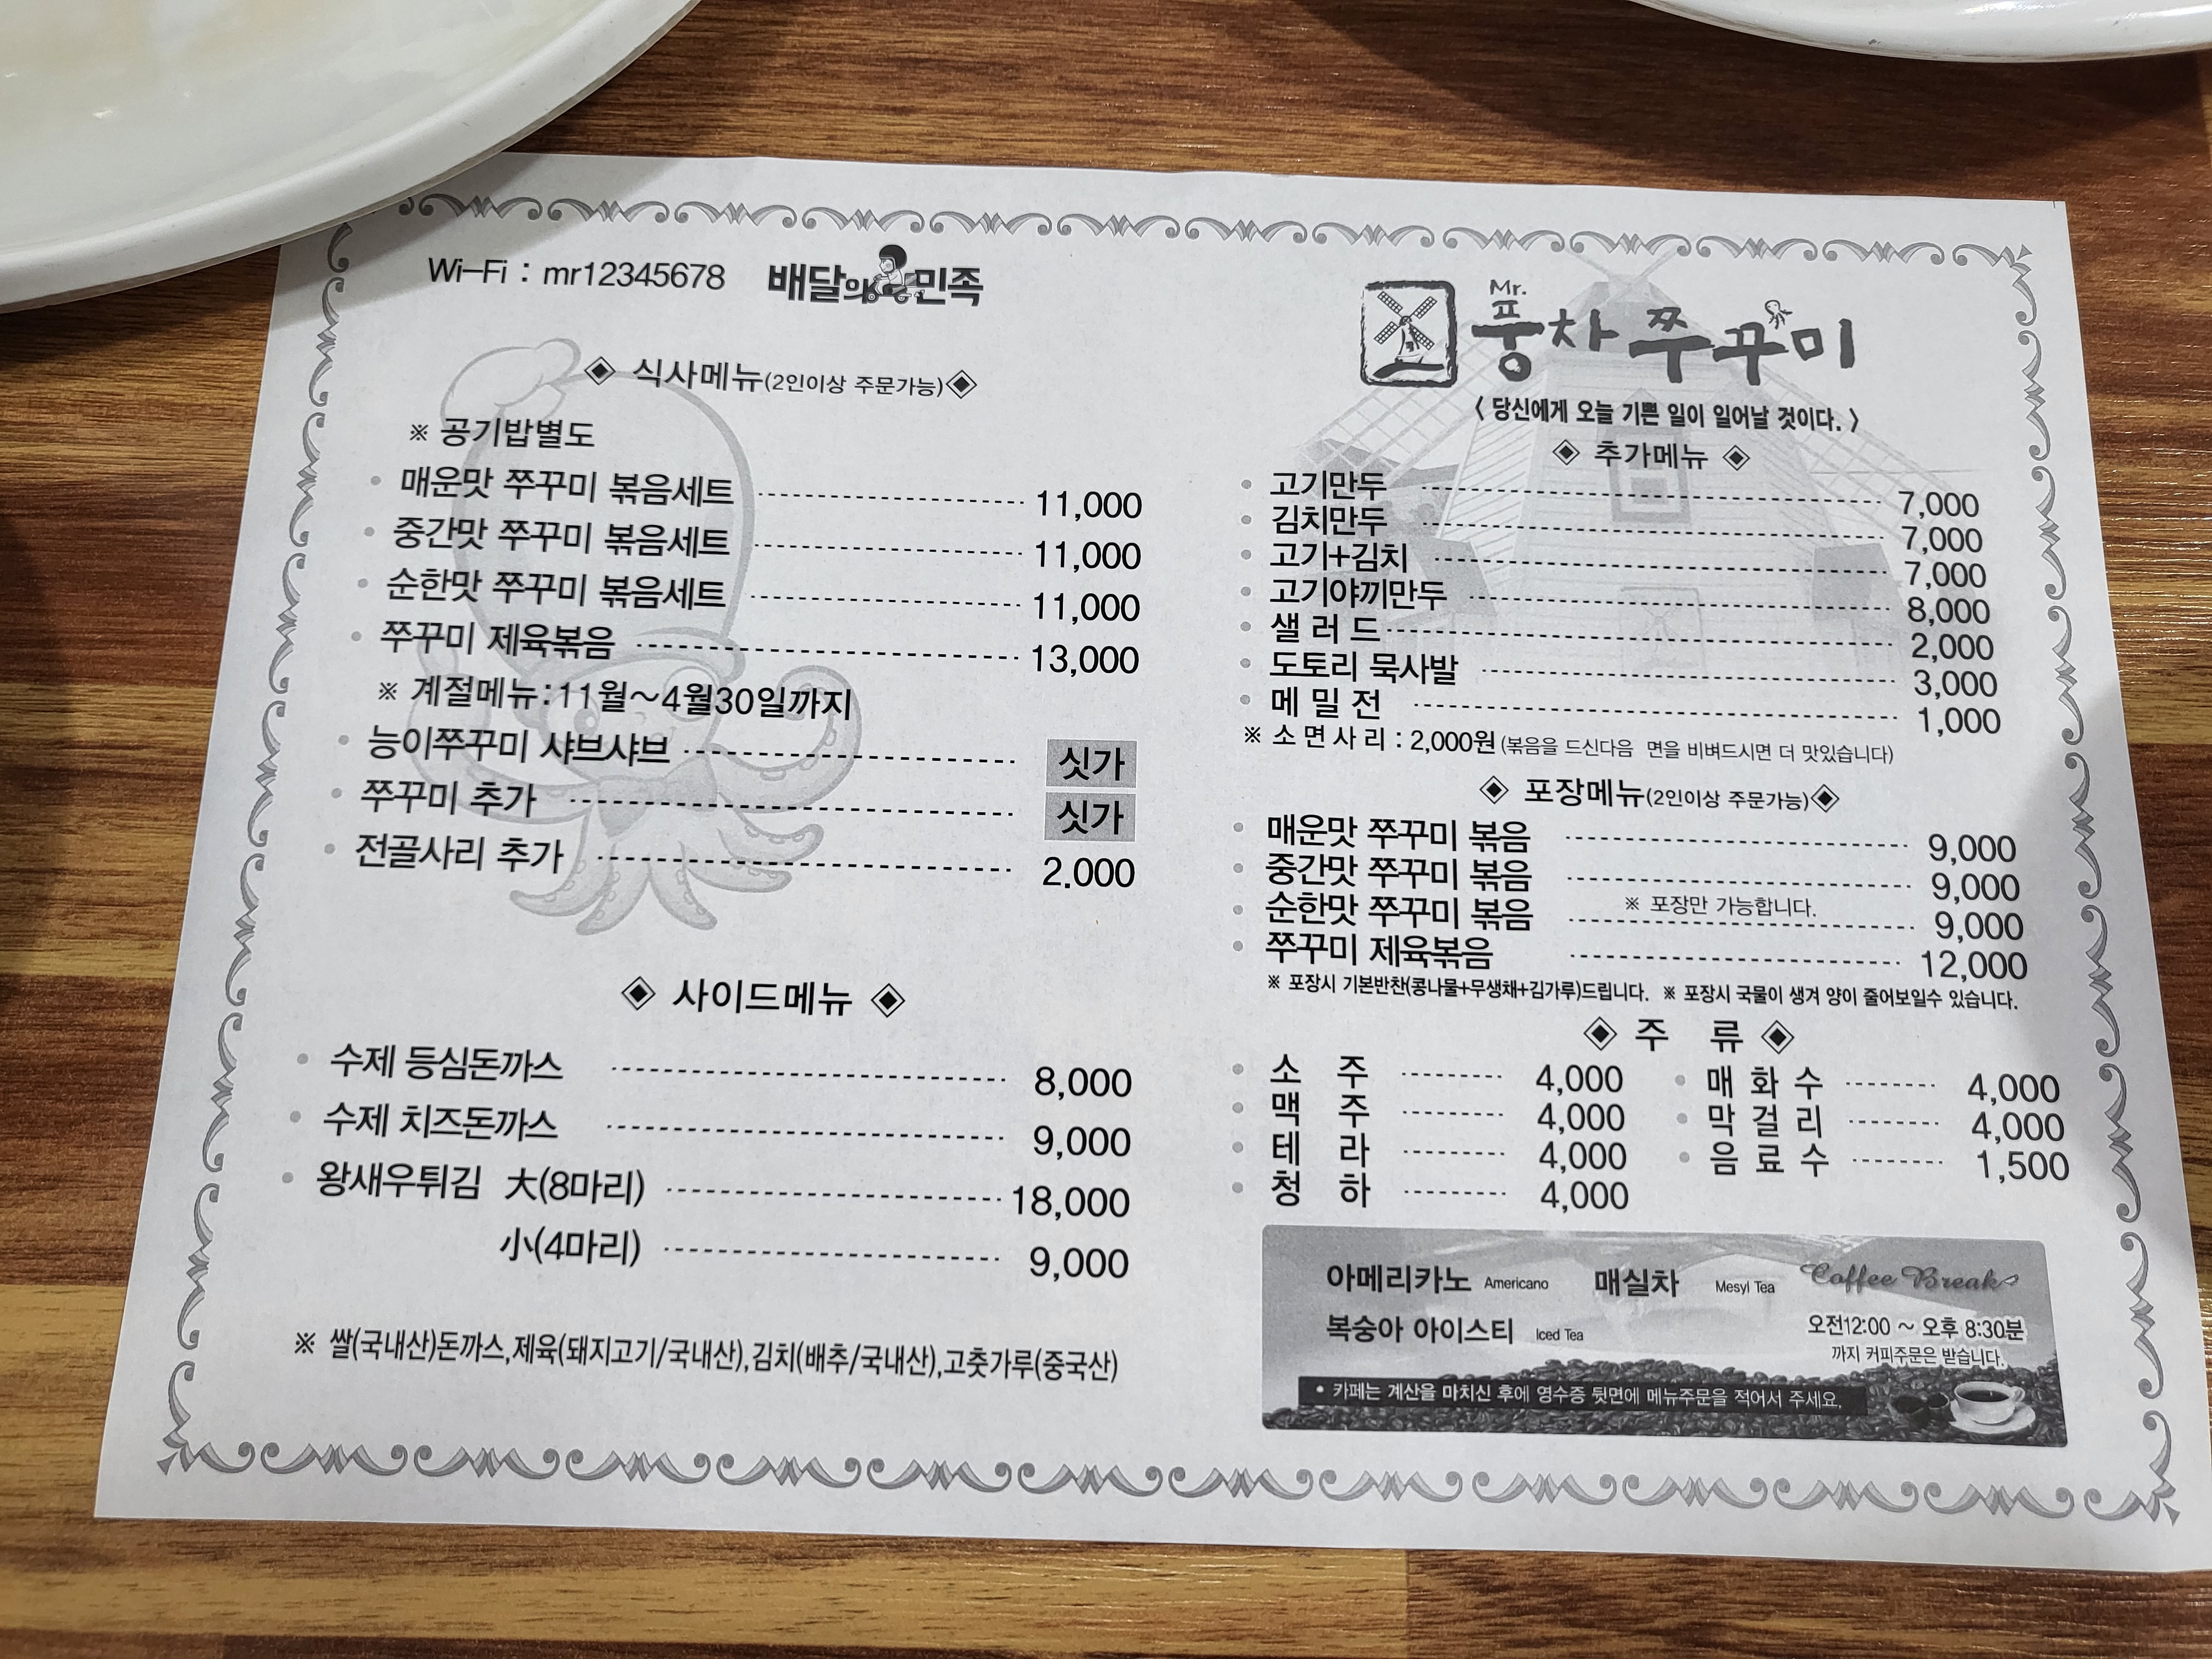 Wi-Fi : mr12345678 배달의민족
◈ 식사메뉴(2인이상 주문가능)◈
※ 공기밥별도
• 매운맛 쭈꾸미 볶음세트 11,000
• 중간맛 쭈꾸미 볶음세트 11,000
• 순한맛 쭈꾸미 볶음세트 11,000
• 쭈꾸미 제육볶음 13,000
※ 계절메뉴:11월~4월30일까지
• 능이쭈꾸미 샤브샤브 싯가
• 쭈꾸미 추가 싯가
• 전골사리 추가 2.000
◈ 사이드메뉴 ◈
• 수제 등심돈까스 8,000
• 수제 치즈돈까스 9,000
• 왕새우튀김 大(8마리) 18,000
小(4마리) 9,000
※ 쌀(국내산)돈까스,제육(돼지고기/국내산),김치(배추/국내산),고춧가루(중국산)
Mr.
풍차 쭈꾸미
< 당신에게 오늘 기쁜 일이 일어날 것이다. >
◈ 추가메뉴 ◈
• 고기만두 7,000
• 김치만두 7,000
• 고기+김치 7,000
• 고기야끼만두 8,000
• 샐 러 드 2,000
• 도토리 묵사발 3,000
• 메 밀 전 1,000
※ 소 면 사 리 : 2,000원(볶음을 드신다음 면을 비벼드시면 더 맛있습니다)
◈ 포장메뉴(2인이상 주문가능)◈
• 매운맛 쭈꾸미 볶음 9,000
• 중간맛 쭈꾸미 볶음 9,000
※ 포장만 가능합니다.
• 순한맛 쭈꾸미 볶음 9,000
• 쭈꾸미 제육볶음 12,000
※ 포장시 기본반찬(콩나물+무생채+김가루)드립니다. ※ 포장시 국물이 생겨 양이 줄어보일수 있습니다.
◈ 주 류 ◈
• 소 주 4,000 • 매 화 수 4,000
• 맥 주 4,000 • 막 걸 리 4,000
• 테 라 4,000 • 음 료 수 1,500
• 청 하 4,000
아메리카노 Americano 매실차 Mesyl Tea Coffee Break
복숭아 아이스티 Iced Tea 오전12:00 ~ 오후 8:30분
까지 커피주문은 받습니다.
• 카페는 계산을 마치신 후에 영수증 뒷면에 메뉴주문을 적어서 주세요.